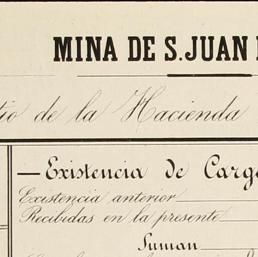 MINA DE S. JUAN
de la Hacienda
Existencia de
Existencia anterior
Recibidas en la presente
Suman